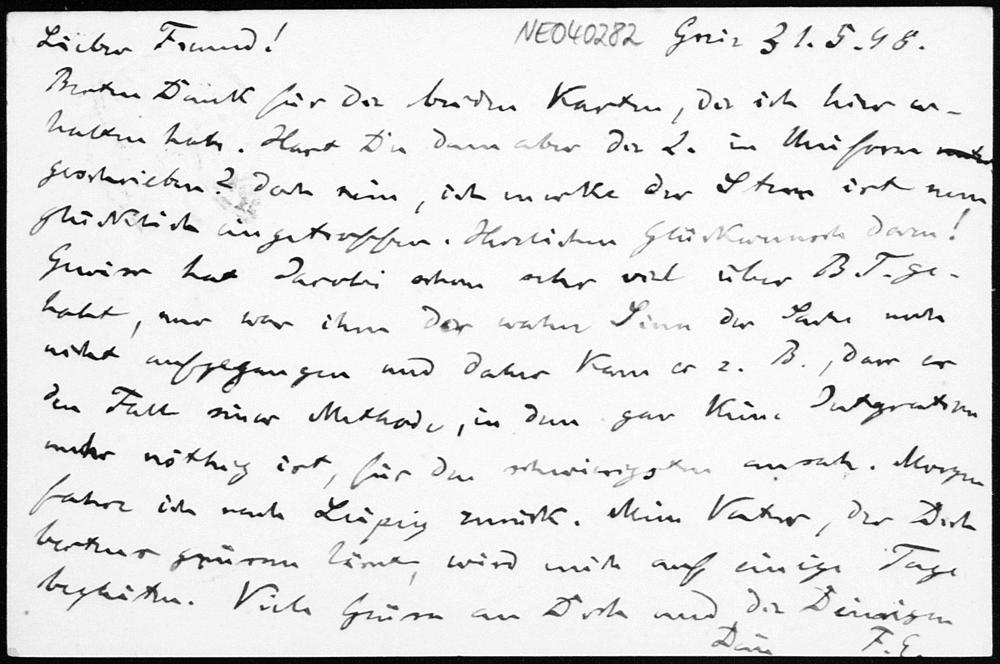 Lieber Freund! NE040282 Greiz 31.5.98.
Besten Dank für die beiden Karten, die ich hier er-
halten habe. Hast Du denn aber die 2. in Uniform
geschrieben? doch nein, ich merke der Stern ist nun
glücklich eingetroffen. Herzlichen Glückwunsch dazu!
Gewiss hat Jacobi schon sehr viel über B.T. ge-
habt, nur war ihm der wahre Sinn der Sache noch
nicht aufgegangen und daher kam es z. B., dass er
den Fall seiner Methode, in dem gar keine Integration
mehr nöthig ist, für den schwierigsten ansah. Morgen
fahre ich nach Leipzig zurück. Mein Vater, der Dich
bestens grüssen lässt, wird mich auf einige Tage
begleiten. Viele Grüsse an Dich und die Deinigen
Dein F.E.